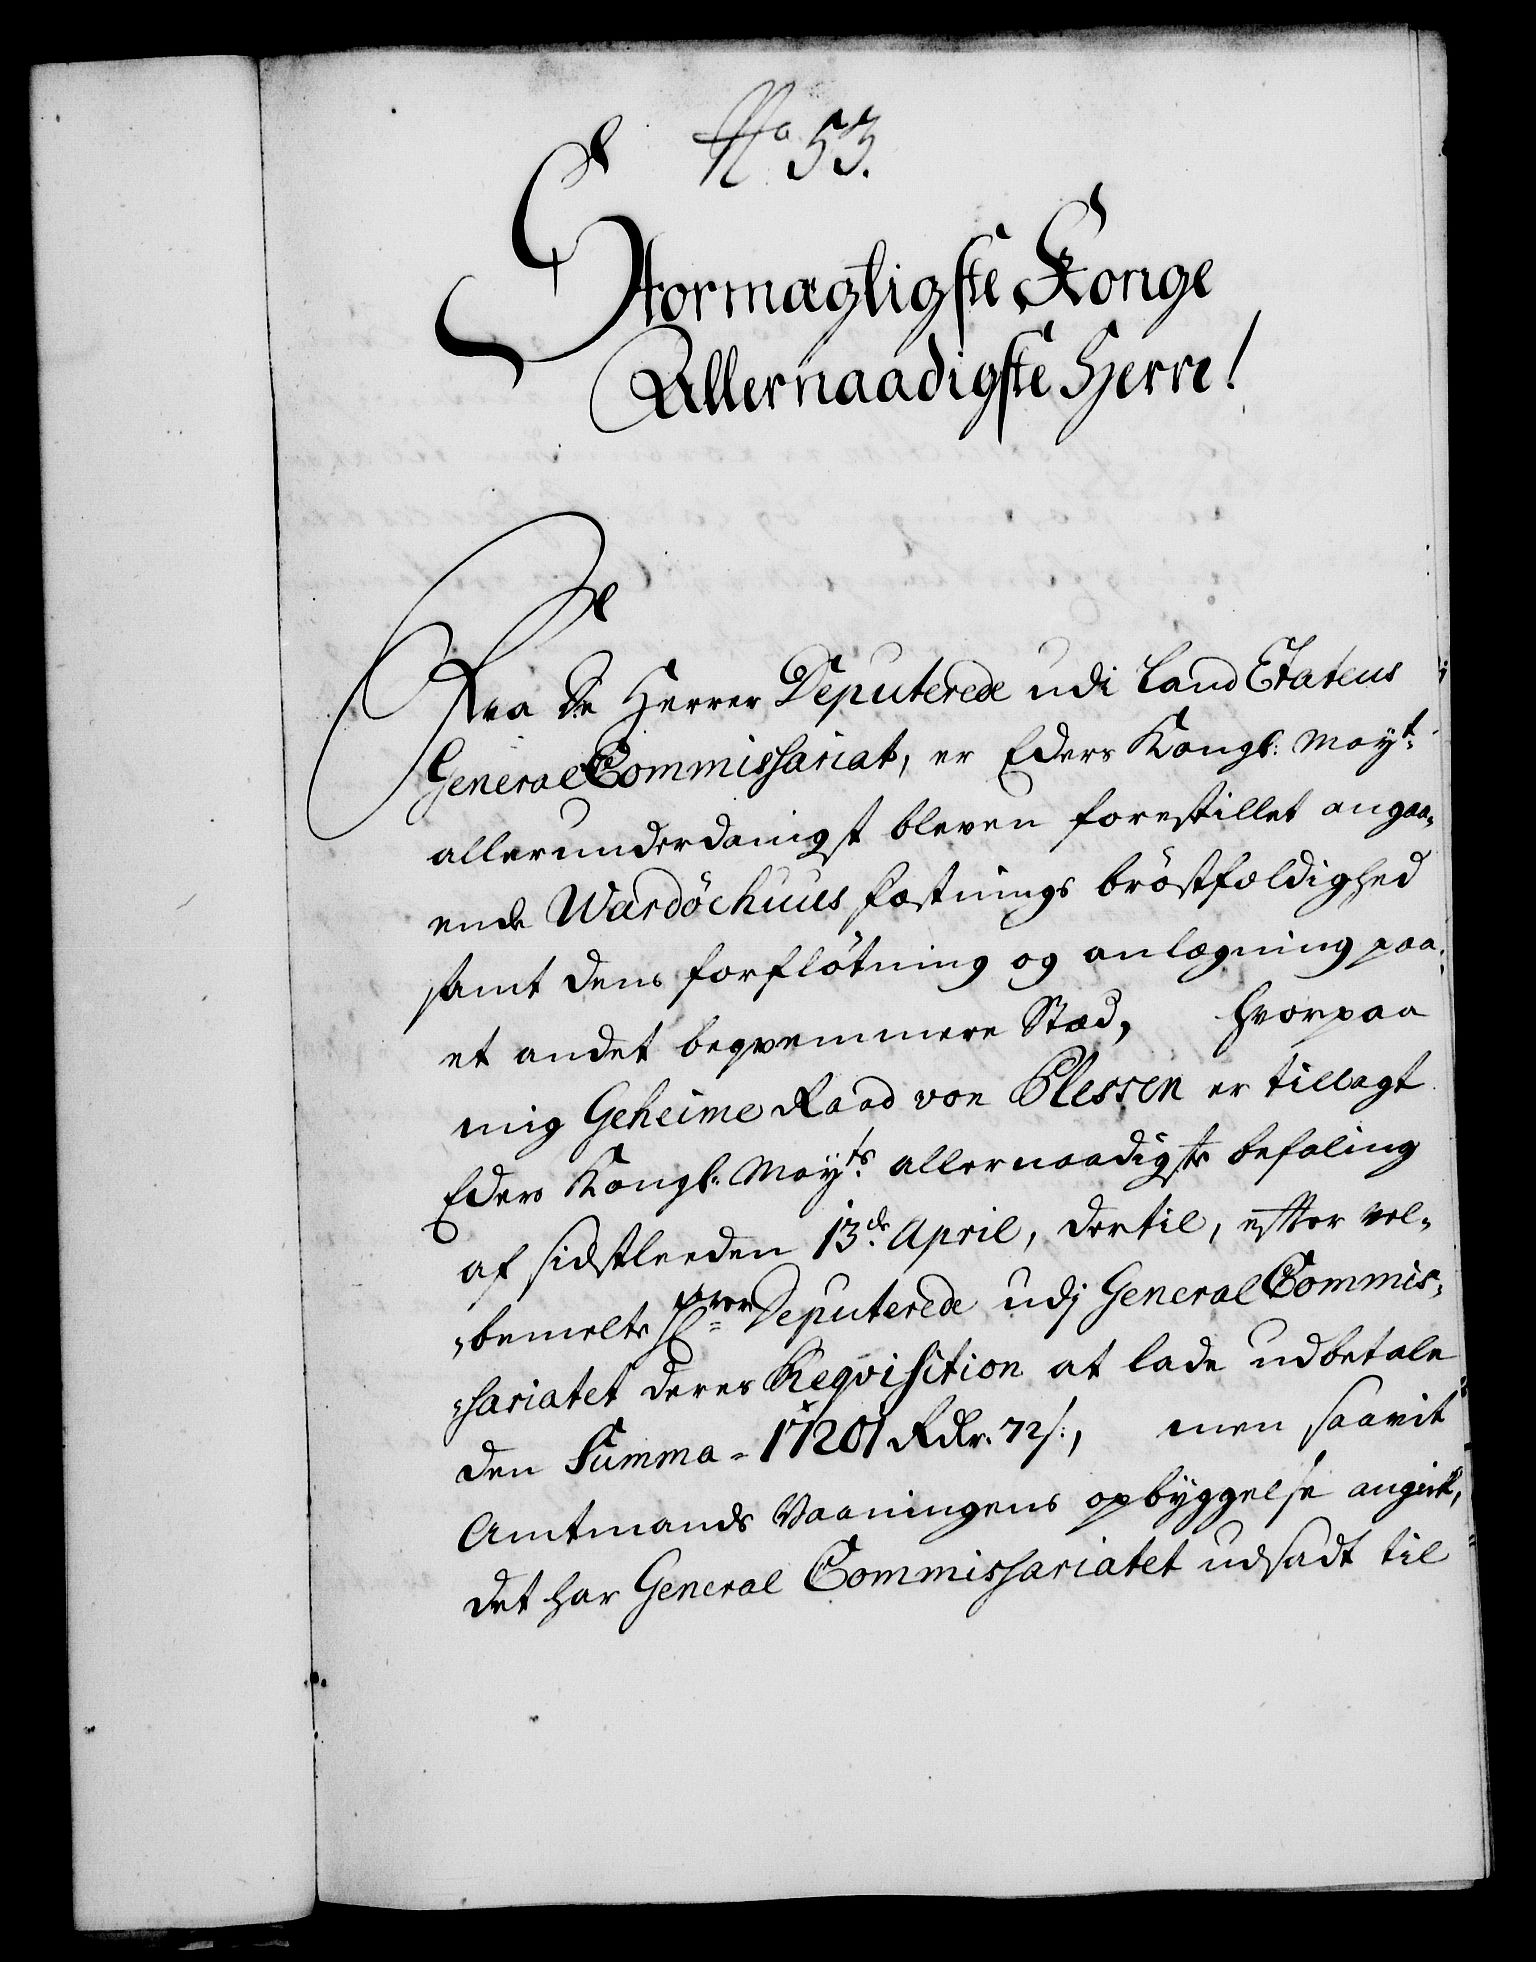 No 53.
Stormægtigste Konge
Allernaadigste Herre!
Fra de Herrer Deputerede udi Land Etatens
General Commissariat, er Eders Kongl: Mayt:
allerunderdanigst bleven forestillet angaa-
ende Wardöehuus Fæstnings bröstfældighed
samt dens forflötning og anlægning paa
et andet beqvemmere Stæd, hvorpaa
mig Geheime Raad von Plessen er tillagt
Eders Kongl: Mayts: allernaadigste befaling
af sidstleeden 13de April, dertil, efter vel-
-bemelte Hrer Deputerede udj General Commis-
-sariatet deres Reqvisition at lade udbetale
den Summa = 17201 Rdr. 72 s:, men saavit
Amtmands Vaaningens opbyggelse angik,
det har General Commissariatet udsadt til